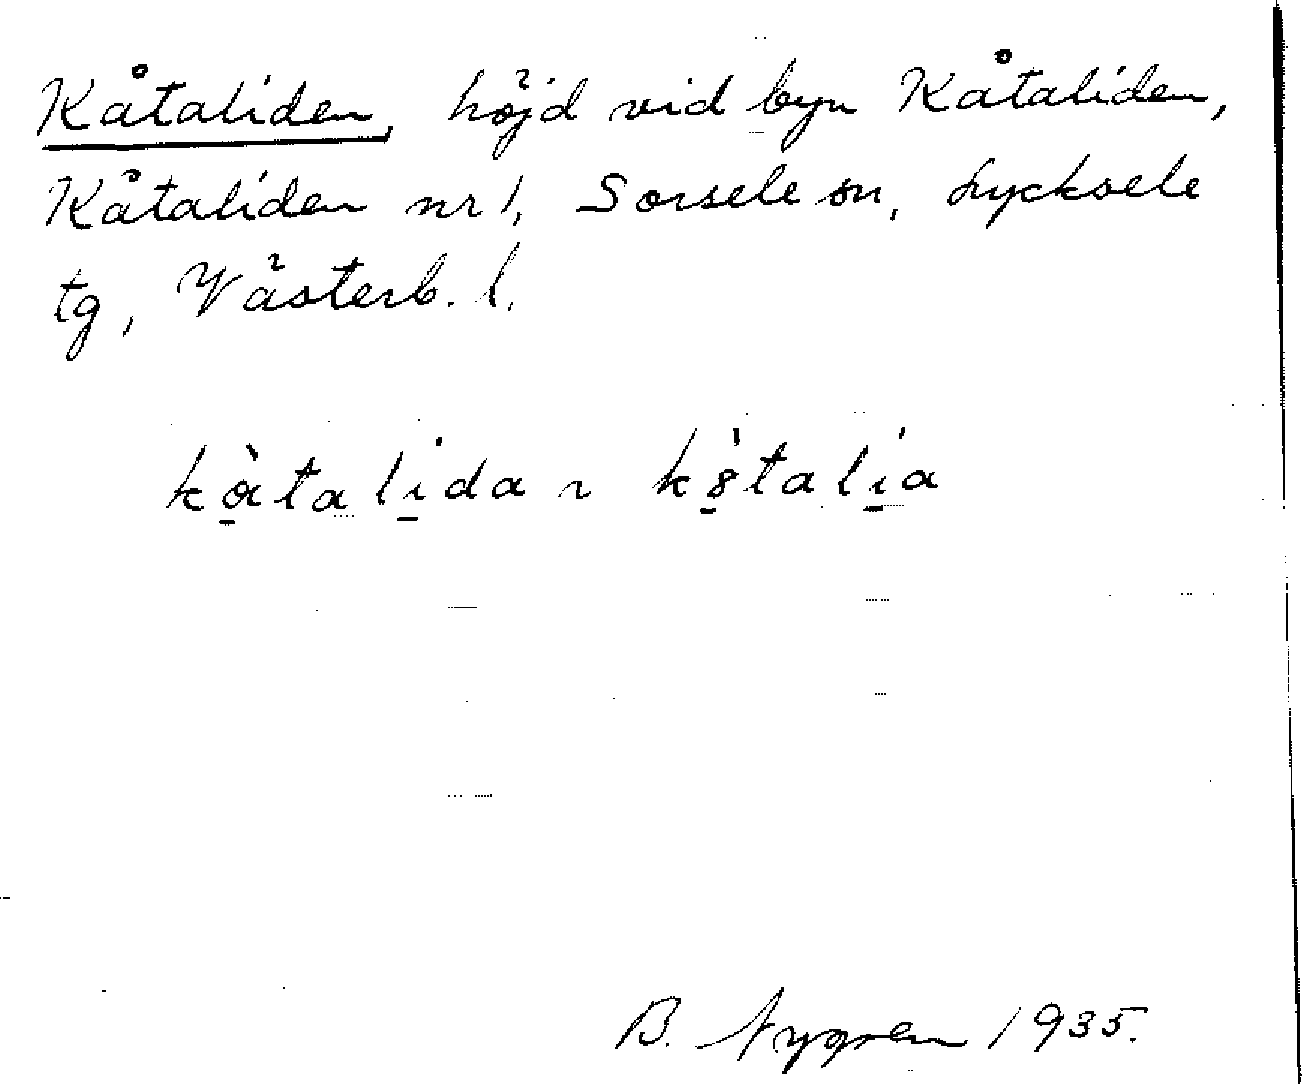 Kåtaliden, höjd vid byn Kåtaliden,
Kåtaliden nr 1, Sorsele sn, Lycksele
tg, Västerb. l.
kàtalida ~ kètalia
B. Nygren 1935.